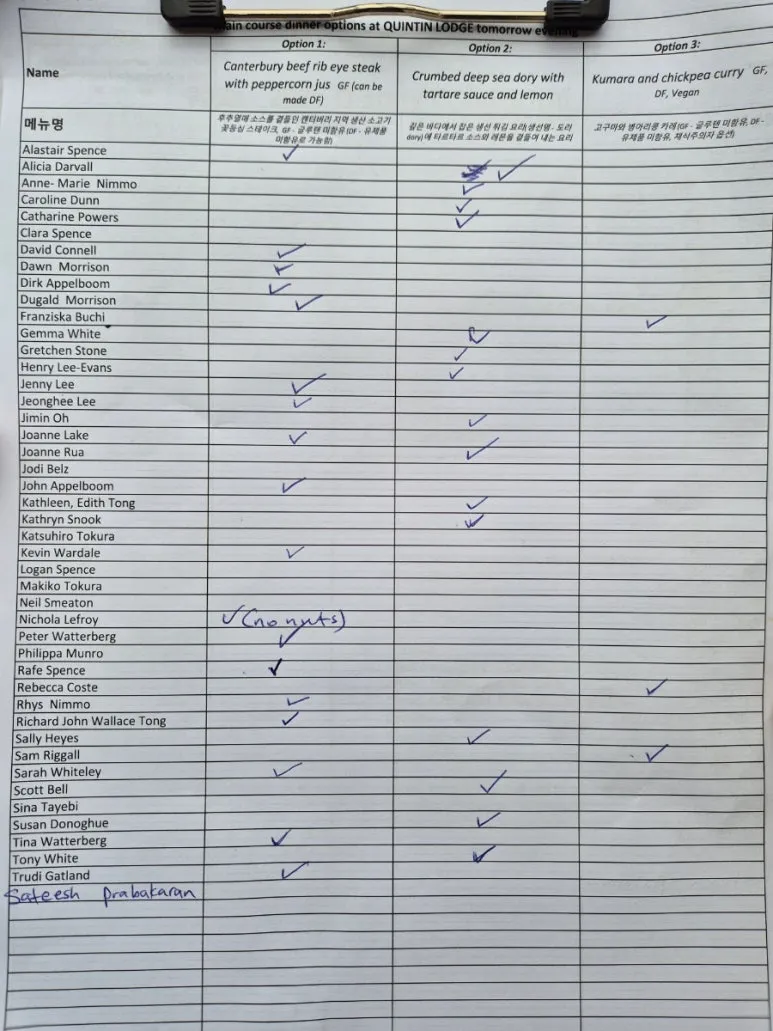 Main course dinner options at QUINTIN LODGE tomorrow evening
Name
Option 1:
Option 2:
Option 3:
Canterbury beef rib eye steak
with peppercorn jus GF (can be
made DF)
Crumbed deep sea dory with
tartare sauce and lemon
Kumara and chickpea curry GF,
DF, Vegan
메뉴명
후추열매 소스를 곁들인 캔터버리 지역 생산 소고기
꽃등심 스테이크, GF - 글루텐 미함유(DF - 유제품
미함유로 가능함)
깊은 바다에서 잡은 생선 튀김 요리(생선명 - 도리
dory)에 타르타르 소스와 레몬을 곁들여 내는 요리
고구마와 병아리콩 카레(GF - 글루텐 미함유, DF -
유제품 미함유, 채식주의자 옵션)
Alastair Spence ✓
Alicia Darvall ✓
Anne- Marie Nimmo ✓
Caroline Dunn ✓
Catharine Powers ✓
Clara Spence
David Connell ✓
Dawn Morrison ✓
Dirk Appelboom ✓
Dugald Morrison ✓
Franziska Buchi ✓
Gemma White ✓
Gretchen Stone ✓
Henry Lee-Evans ✓
Jenny Lee ✓
Jeonghee Lee ✓
Jimin Oh ✓
Joanne Lake ✓
Joanne Rua ✓
Jodi Belz
John Appelboom ✓
Kathleen, Edith Tong ✓
Kathryn Snook ✓
Katsuhiro Tokura
Kevin Wardale ✓
Logan Spence
Makiko Tokura
Neil Smeaton
Nichola Lefroy ✓ (no nuts)
Peter Watterberg ✓
Philippa Munro
Rafe Spence ✓
Rebecca Coste ✓
Rhys Nimmo ✓
Richard John Wallace Tong ✓
Sally Heyes ✓
Sam Riggall ✓
Sarah Whiteley ✓
Scott Bell ✓
Sina Tayebi
Susan Donoghue ✓
Tina Watterberg ✓
Tony White ✓
Trudi Gatland ✓
Sateesh Prabakaran